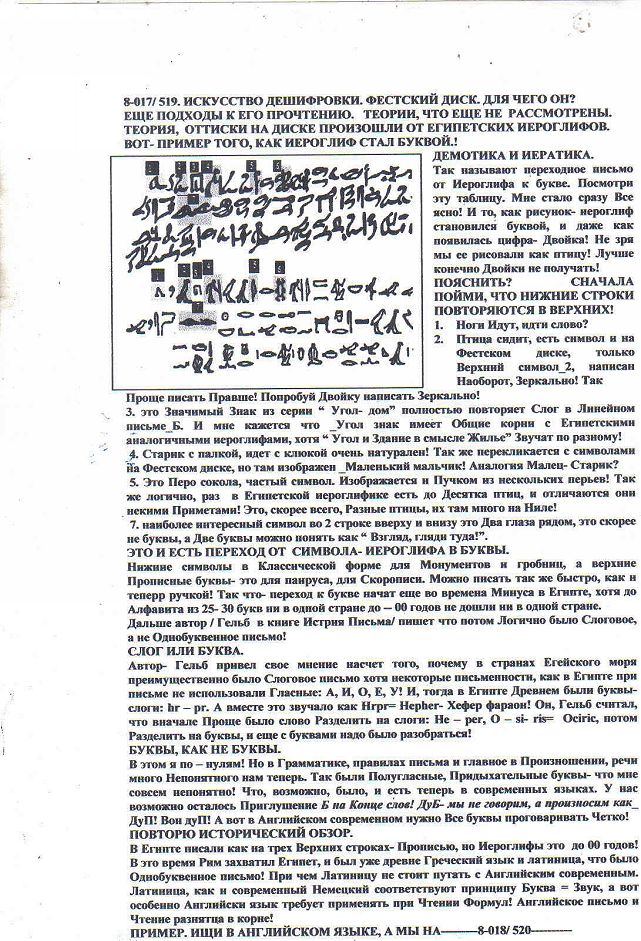 8-017/ 519. ИСКУССТВО ДЕШИФРОВКИ. ФЕСТСКИЙ ДИСК. ДЛЯ ЧЕГО ОН?
ЕЩЕ ПОДХОДЫ К ЕГО ПРОЧТЕНИЮ. ТЕОРИИ, ЧТО ЕЩЕ НЕ РАССМОТРЕНЫ.
ТЕОРИЯ, ОТТИСКИ НА ДИСКЕ ПРОИЗОШЛИ ОТ ЕГИПЕТСКИХ ИЕРОГЛИФОВ.
ВОТ- ПРИМЕР ТОГО, КАК ИЕРОГЛИФ СТАЛ БУКВОЙ.!
ДЕМОТИКА И ИЕРАТИКА.
Так называют переходное письмо
от Иероглифа к букве. Посмотри
эту таблицу. Мне стало сразу Все
ясно! И то, как рисунок- иероглиф
становился буквой, и даже как
появилась цифра- Двойка! Не зря
мы ее рисовали как птицу! Лучше
конечно Двойки не получать!
ПОЯСНИТЬ? СНАЧАЛА
ПОЙМИ, ЧТО НИЖНИЕ СТРОКИ
ПОВТОРЯЮТСЯ В ВЕРХНИХ!
1. Ноги Идут, идти слово?
2. Птица сидит, есть символ и на
Фестском диске, только
Верхний символ_2, написан
Наоборот, Зеркально! Так
Проще писать Правше! Попробуй Двойку написать Зеркально!
3. это Значимый Знак из серии “ Угол- дом” полностью повторяет Слог в Линейном
письме_Б. И мне кажется что _Угол знак имеет Общие корни с Египетскими
аналогичными иероглифами, хотя “ Угол и Здание в смысле Жилье” Звучат по разному!
4. Старик с палкой, идет с клюкой очень натурален! Так же перекликается с символами
на Фестском диске, но там изображен _Маленький мальчик! Аналогия Малец- Старик?
5. Это Перо сокола, частый символ. Изображается и Пучком из нескольких перьев! Так
же логично, раз в Египетской иероглифике есть до Десятка птиц, и отличаются они
некими Приметами! Это, скорее всего, Разные птицы, их там много на Ниле!
7. наиболее интересный символ во 2 строке вверху и внизу это Два глаза рядом, это скорее
не буквы, а Две буквы можно понять как “ Взгляд, гляди туда!”.
ЭТО И ЕСТЬ ПЕРЕХОД ОТ СИМВОЛА- ИЕРОГЛИФА В БУКВЫ.
Нижние символы в Классической форме для Монументов и гробниц, а верхние
Прописные буквы- это для папируса, для Скорописи. Можно писать так же быстро, как и
теперр ручкой! Так что- переход к букве начат еще во времена Минуса в Египте, хотя до
Алфавита из 25- 30 букв ни в одной стране до – 00 годов не дошли ни в одной стране.
Дальше автор / Гельб в книге Истрия Письма/ пишет что потом Логично было Слоговое,
а не Однобуквенное письмо!
СЛОГ ИЛИ БУКВА.
Автор- Гельб привел свое мнение насчет того, почему в странах Егейского моря
преимущественно было Слоговое письмо хотя некоторые письменности, как в Египте при
письме не использовали Гласные: А, И, О, Е, У! И, тогда в Египте Древнем были буквы-
слоги: hr – pr. А вместе это звучало как Hrpr= Hepher- Хефер фараон! Он, Гельб считал,
что вначале Проще было слово Разделить на слоги: Не – per, O – si- ris= Ociric, потом
Разделить на буквы, и еще с буквами надо было разобраться!
БУКВЫ, КАК НЕ БУКВЫ.
В этом я по – нулям! Но в Грамматике, правилах письма и главное в Произношении, речи
много Непонятного нам теперь. Так были Полугласные, Придыхательные буквы- что мне
совсем непонятно! Что, возможно, было, и есть теперь в современных языках. У нас
возможно осталось Приглушение Б на Конце слов! ДуБ- мы не говорим, а произносим как_
ДуП! Вон дуП! А вот в Английском современном нужно Все буквы проговаривать Четко!
ПОВТОРЮ ИСТОРИЧЕСКИЙ ОБЗОР.
В Египте писали как на трех Верхних строках- Прописью, но Иероглифы это до 00 годов!
В это время Рим захватил Египет, и был уже древне Греческий язык и латиница, что было
Однобуквенное письмо! При чем Латиницу не стоит путать с Английским современным.
Латиница, как и современный Немецкий соответствуют принципу Буква = Звук, а вот
особенно Английски язык требует применять при Чтении Формул! Английское письмо и
Чтение разнятца в корне!
ПРИМЕР. ИЩИ В АНГЛИЙСКОМ ЯЗЫКЕ, А МЫ НА----------8-018/ 520-----------